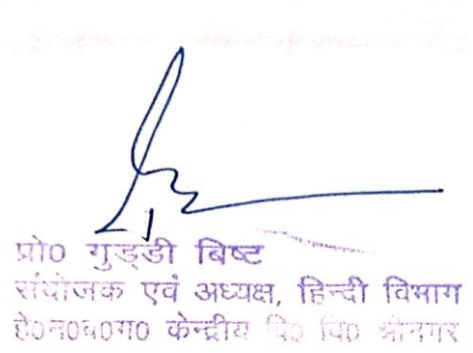 प्रो0 गुड्डी बिष्ट
संयोजक एवं अध्यक्ष, हिन्दी विभाग
हे0न0ब0ग0 केन्द्रीय वि0 वि0 श्रीनगर